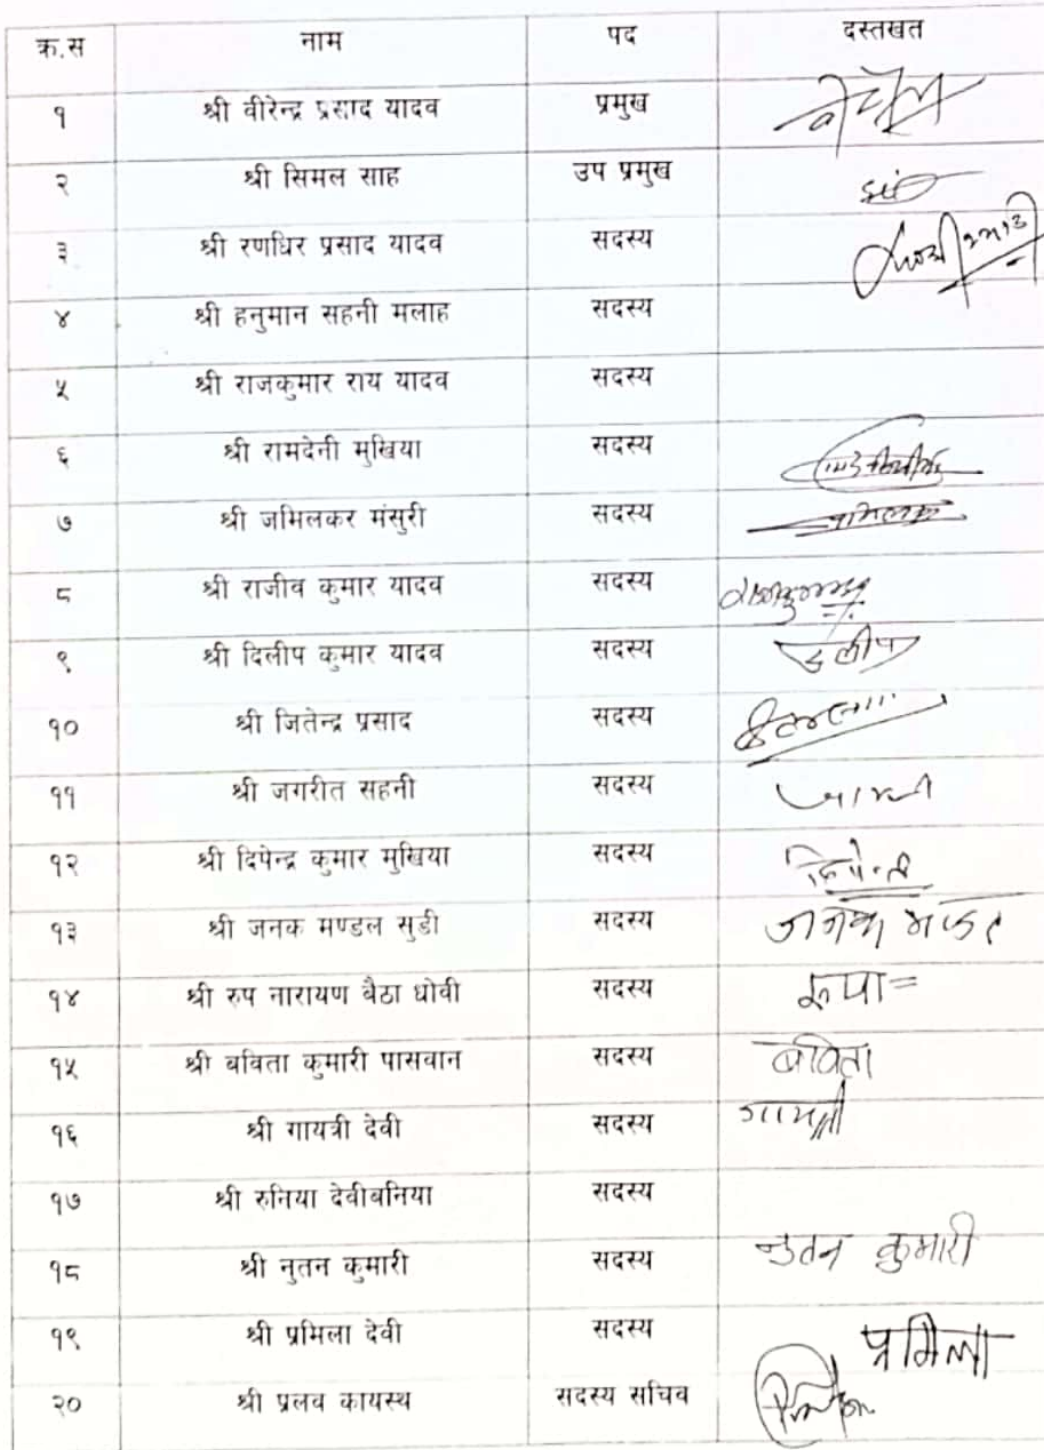 क्र.स नाम पद दस्तखत
१ श्री वीरेन्द्र प्रसाद यादव प्रमुख
२ श्री सिमल साह उप प्रमुख
३ श्री रणधिर प्रसाद यादव सदस्य
४ श्री हनुमान सहनी मलाह सदस्य
५ श्री राजकुमार राय यादव सदस्य
६ श्री रामदेनी मुखिया सदस्य
७ श्री जमिलकर मंसुरी सदस्य
८ श्री राजीव कुमार यादव सदस्य
९ श्री दिलीप कुमार यादव सदस्य
१० श्री जितेन्द्र प्रसाद सदस्य
११ श्री जगरीत सहनी सदस्य
१२ श्री दिपेन्द्र कुमार मुखिया सदस्य
१३ श्री जनक मण्डल सुडी सदस्य जनक
१४ श्री रुप नारायण बैठा धोवी सदस्य रुपा
१५ श्री बविता कुमारी पासवान सदस्य बविता
१६ श्री गायत्री देवी सदस्य गायत्री
१७ श्री रुनिया देवीबनिया सदस्य
१८ श्री नुतन कुमारी सदस्य नुतन कुमारी
१९ श्री प्रमिला देवी सदस्य प्रमिला
२० श्री प्रलव कायस्थ सदस्य सचिव